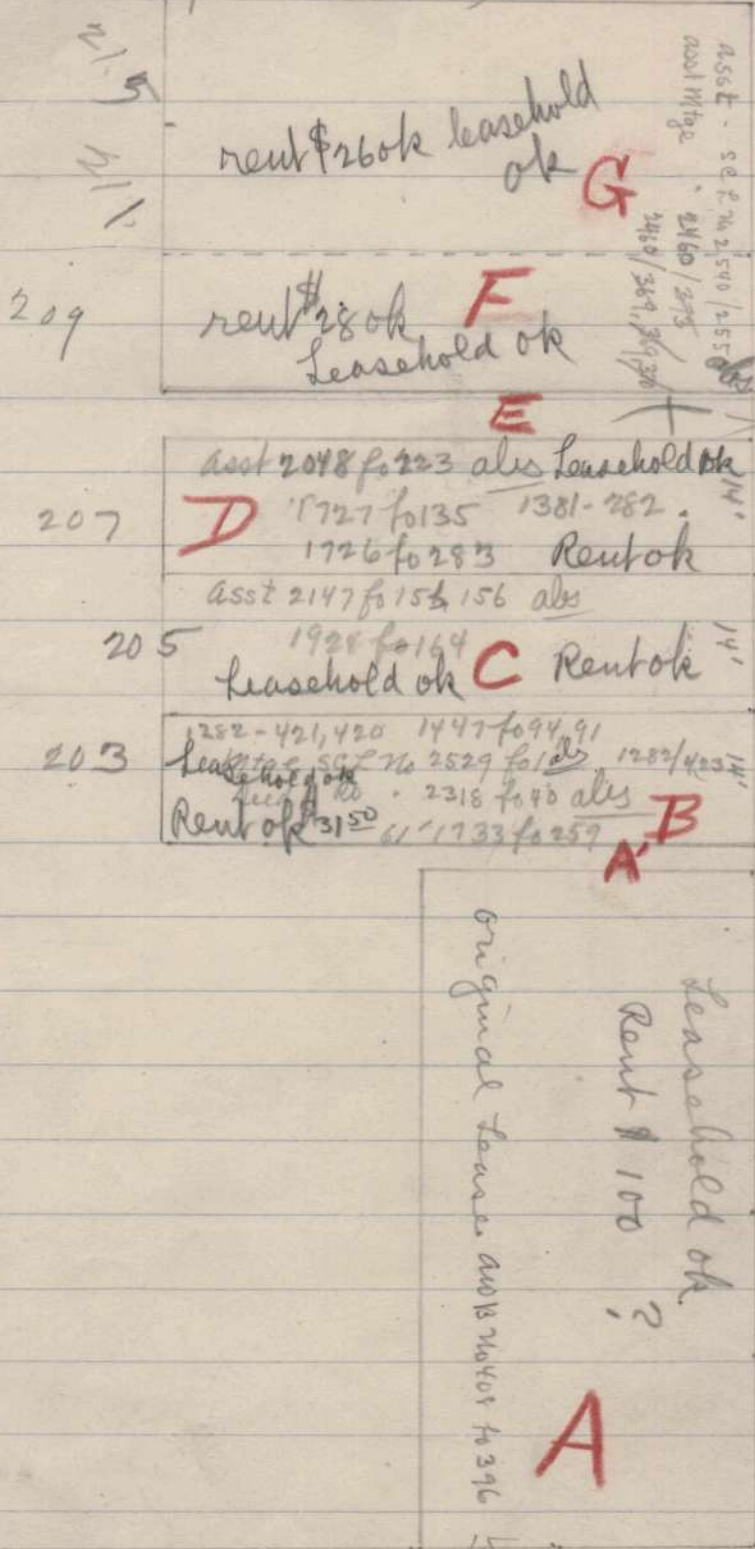 rent $26 ok leasehold
ok
G
asst - SCL No 2540/255
asst Mtge " 2460/375
2460/369,
209
rent $28 ok
F
Leasehold ok
E
207
asst 2048 fo 223 abs Leasehold ok
14'
D
1727 fo 135 1381-282.
1726 fo 283 Rent ok
asst 2147 fo 156 abs
205
1928 fo 164
14'
Leasehold ok C Rent ok
1282-421,420 1447 fo 94,91
203
Leasehold ok
SCL No 2529 abs 1282/423
14'
2318 fo 40 abs
Rent ok $31 50
1733 fo 259
B
A'
Leasehold ok.
Rent $ 100 ?
original Lease fo 396
A